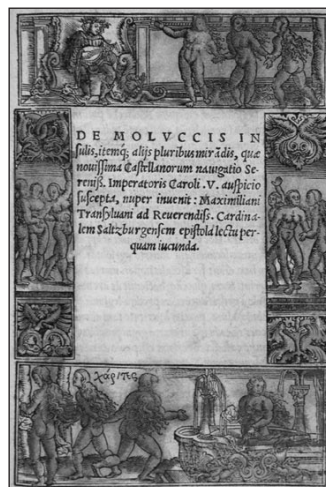 DE MOLVCCIS IN
sulis, itemq; alijs pluribus mirãdis, quæ
novissima Castellanorum navigatio Se-
reniss. Imperatoris Caroli .V. auspicio
suscepta, nuper invenit: Maximiliani
Transylvani ad Reverendiss. Cardina-
lem Saltzburgensem epistola lectu per-
quam iucunda.
χάριτες